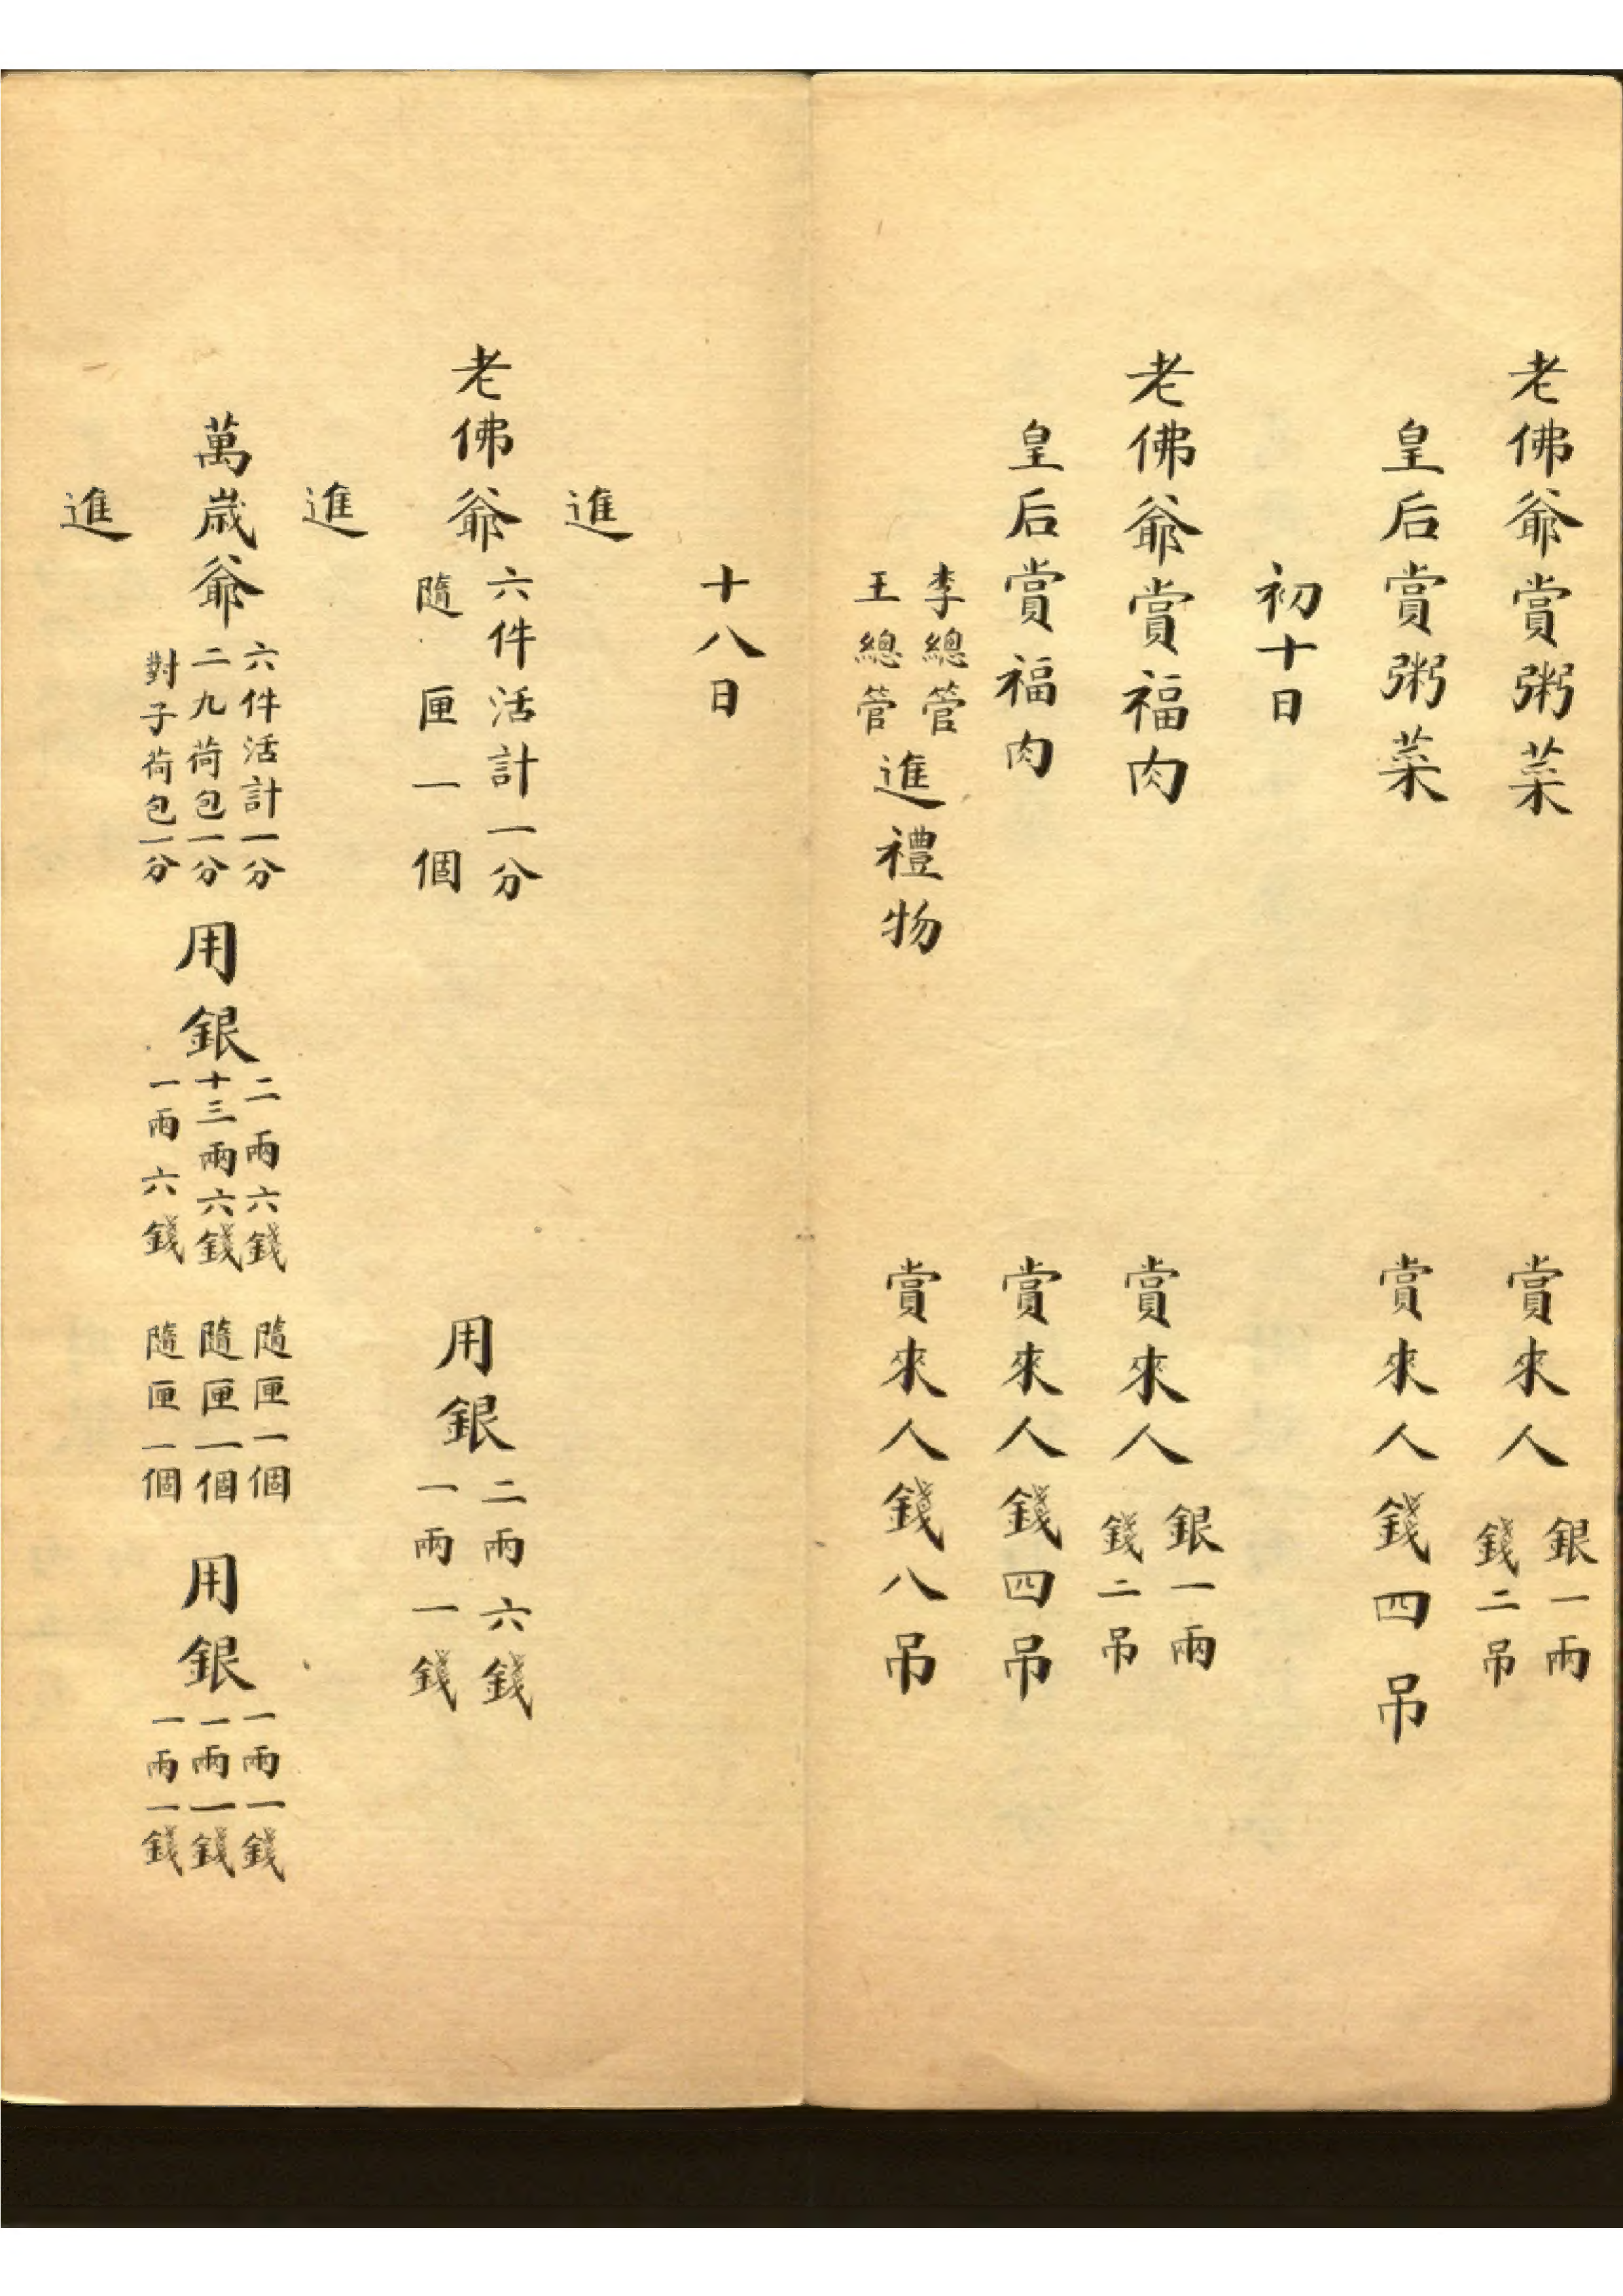 老佛爺賞粥菜 賞來人銀一兩錢二吊
皇后賞粥菜 賞來人錢四吊
初十日
老佛爺賞福肉 賞來人銀一兩錢二吊
皇后賞福肉 賞來人錢四吊
李總管王總管進禮物 賞來人錢八吊
十八日
進
老佛爺六件活計一分隨匣一個 用銀二兩六錢一兩一錢
進
萬歲爺六件活計一分二九荷包一分對子荷包一分 用銀二兩六錢十三兩六錢一兩六錢 隨匣一個隨匣一個隨匣一個 用銀一兩一錢一兩一錢一兩一錢
進